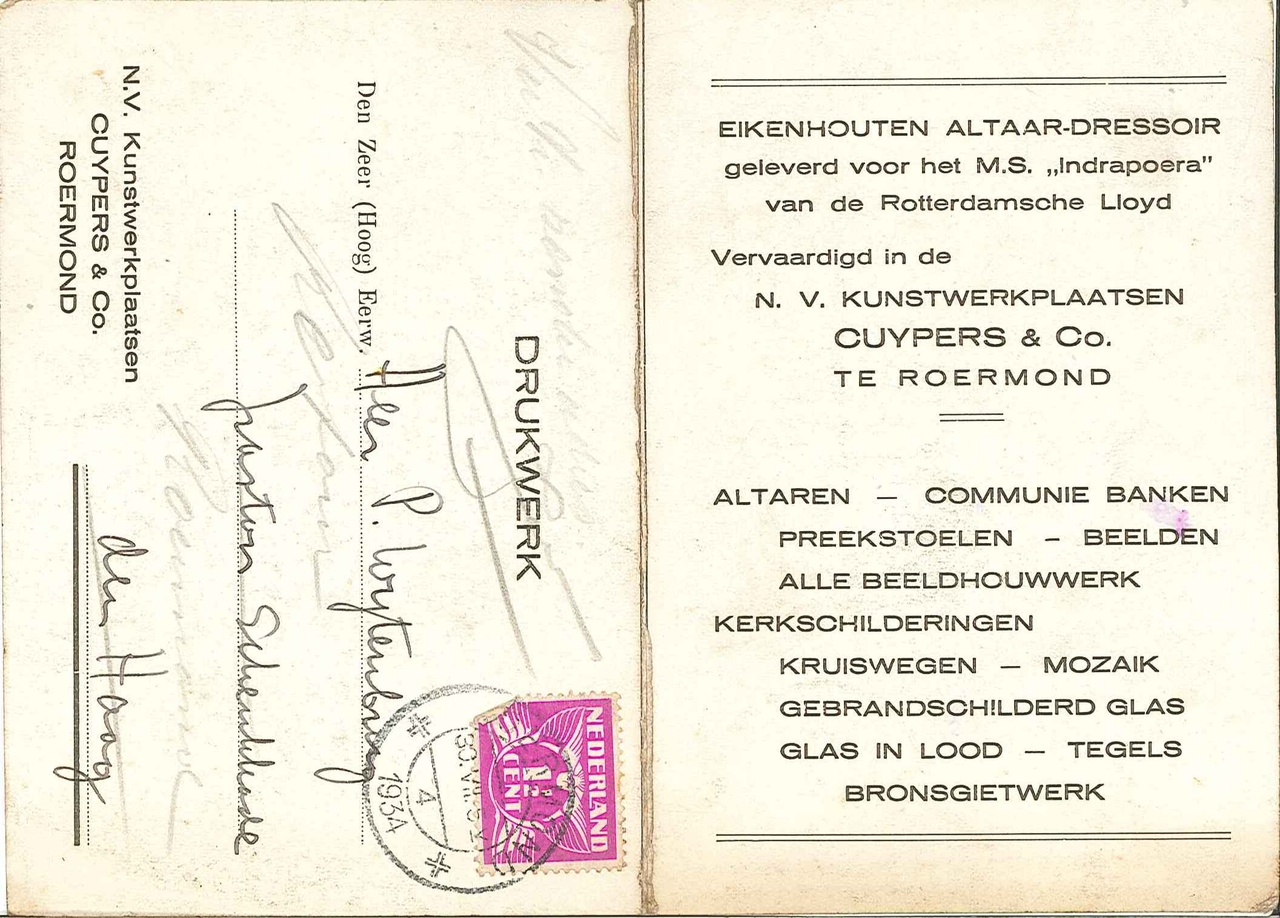 N.V. Kunstwerkplaatsen
CUYPERS & Co.
ROERMOND
DRUKWERK
Den Zeer (Hoog) Eerw.
Heer P. Wijtenburg
pastoor Schenkkade
den Haag
NEDERLAND
1½
CENT
4
1934
EIKENHOUTEN ALTAAR-DRESSOIR
geleverd voor het M.S. „Indrapoera"
van de Rotterdamsche Lloyd
Vervaardigd in de
N. V. KUNSTWERKPLAATSEN
CUYPERS & Co.
TE ROERMOND
ALTAREN — COMMUNIE BANKEN
PREEKSTOELEN — BEELDEN
ALLE BEELDHOUWWERK
KERKSCHILDERINGEN
KRUISWEGEN — MOZAIK
GEBRANDSCHILDERD GLAS
GLAS IN LOOD — TEGELS
BRONSGIETWERK